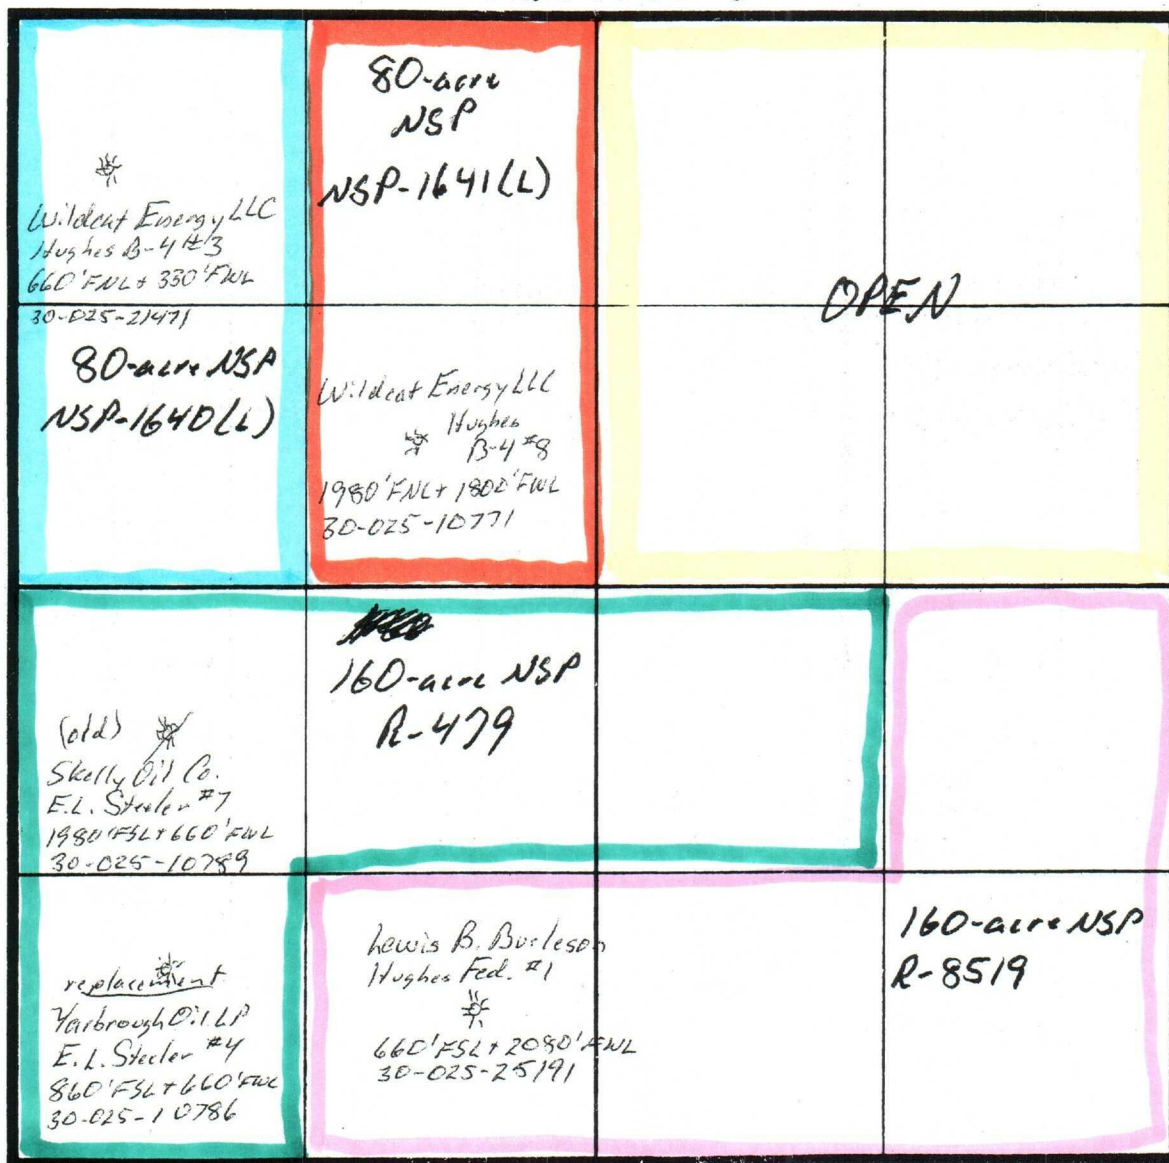 80-acre
NSP
NSP-1641(L)
Wildcat Energy LLC
Hughes B-4 #3
660'FNL + 330'FWL
30-025-21471
80-acre NSP
NSP-1640(L)
OPEN
Wildcat Energy LLC
Hughes
B-4 #8
1980'FNL + 1800'FWL
30-025-10771
160-acre NSP
R-479
(old)
Skelly Oil Co.
E.L. Steeler #7
1980'FSL + 660'FWL
30-025-10789
replacement
Yarbrough Oil LP
E.L. Steeler #4
860'FSL + 660'FWL
30-025-10786
Lewis B. Burleson
Hughes Fed. #1
660'FSL + 2080'FWL
30-025-25191
160-acre NSP
R-8519